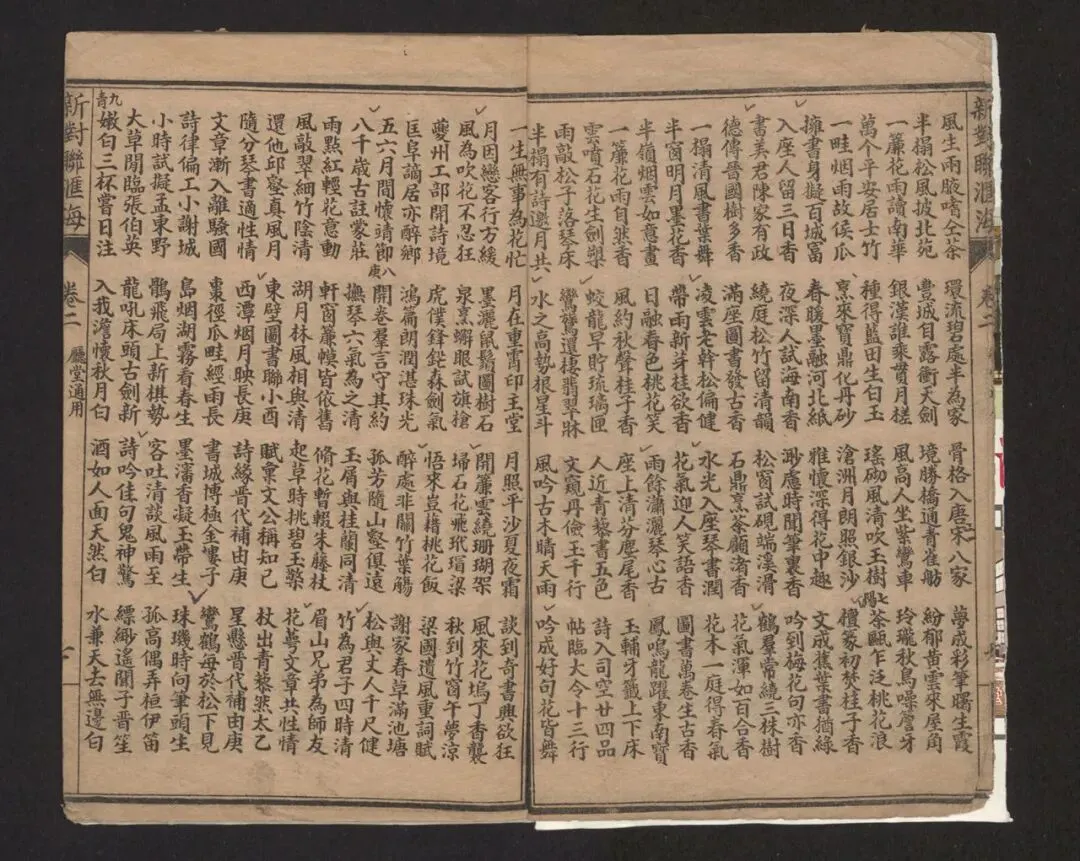 新對聯滙海
卷二
風生兩腋嗜仝茶
半榻松風披北苑
一簾花雨讀南華
萬个平安居士竹
一畦烟雨故侯瓜
擁書身擬百城富
入座人留三日香
書美君陳家有政
德傳晉國樹多香
一榻清風書葉舞
半窗明月墨花香
半嶺烟雲如意畫
一簾花雨自然香
雲噴石花生劍槊
雨敲松子落琴床
半榻有詩邀月共
環流碧處半為家
豐城目露衝天劍
銀漢誰乘貫月槎
種得藍田生白玉
烹來寶鼎化丹砂
春暖墨融河北紙
夜深人試海南香
繞庭松竹留清韻
滿座圖書發古香
凌雲老幹松偏健
帶雨新芽桂欲香
日融春色桃花笑
風約秋聲桂子香
蛟龍早貯琉璃匣
鸞鷟還棲翡翠牀
水之高勢根星斗
骨格入唐宋八家
境勝橋通青雀舫
風高人坐紫鸞車
瑤砌風清吹玉樹
滄洲月朗照銀沙
雅懷深得花中趣
渺慮時聞筆裏香
松窗試硯端溪滑
石鼎烹茶顧渚香
水光入座琴書潤
花氣迎人笑語香
雨餘瀟灑琴心古
座上清芬麈尾香
人近青藜書五色
文窺丹儉玉千行
風吟古木晴天雨
夢成彩筆曙生霞
紛郁黃雲來屋角
玲瓏秋鳥噪簷牙
七陽
茶甌乍泛桃花浪
檀篆初焚桂子香
文成蕉葉書猶綠
吟到梅花句亦香
鶴羣常繞三株樹
花氣渾如百合香
花木一庭得春氣
圖書萬卷生古香
鳳鳴龍躍東南寶
玉輔牙籤上下床
詩入司空廿四品
帖臨大令十三行
吟成好句花皆舞
一生無事為花忙
月因戀客行方緩
風為吹花不忍狂
夔州工部開詩境
匡阜謫居亦醉鄉
五六月間懷靖節
八千歲古註蒙莊
雨點紅輕花意動
風敲翠細竹陰清
還他邱壑真風月
隨分琴書適性情
文章漸入離騷國
詩律偏工小謝城
小時試擬孟東野
大草閒臨張伯英
九青
嫩白三杯嘗日注
月在重霄印玉堂
墨灑鼠鬚圖樹石
泉烹蠏眼試旗槍
虎僕鋒鈆森劍氣
鴻篇朗潤湛珠光
八庚
開卷羣言守其約
撫琴六氣為之清
軒窗簾幙皆依舊
湖月林風相與清
東壁圖書聯小酉
西潭烟月映長庚
棗徑瓜畦經雨長
島烟湖霧看春生
鶻飛局上新棋勢
龍吼床頭古劍新
入我澹懷秋月白
月照平沙夏夜霜
開簾雲繞珊瑚架
埽石花飛玳瑁梁
悟來豈藉桃花飯
醉處非關竹葉觴
孤芳隨山壑俱遠
玉屑與桂蘭同清
脩花暫輟朱藤杖
起草時挑碧玉檠
賦稟文公稱知己
詩緣晋代補由庚
書城博極金壥子
墨瀋香凝玉帶生
客吐清談風雨至
詩吟佳句鬼神驚
酒如人面天然白
談到奇書興欲狂
風來花塢丁香襲
秋到竹窗午夢涼
梁國遺風重詞賦
謝家春草滿池塘
松與丈人千尺健
竹為君子四時清
眉山兄弟為師友
花萼文章共性情
杖出青藜然太乙
星懸晋代補由庚
鸞鶴每於松下見
珠璣時向筆頭生
孤高偶弄桓伊笛
縹緲遙聞子晋笙
水兼天去無邊白
新對聯滙海
卷二
廳堂適用